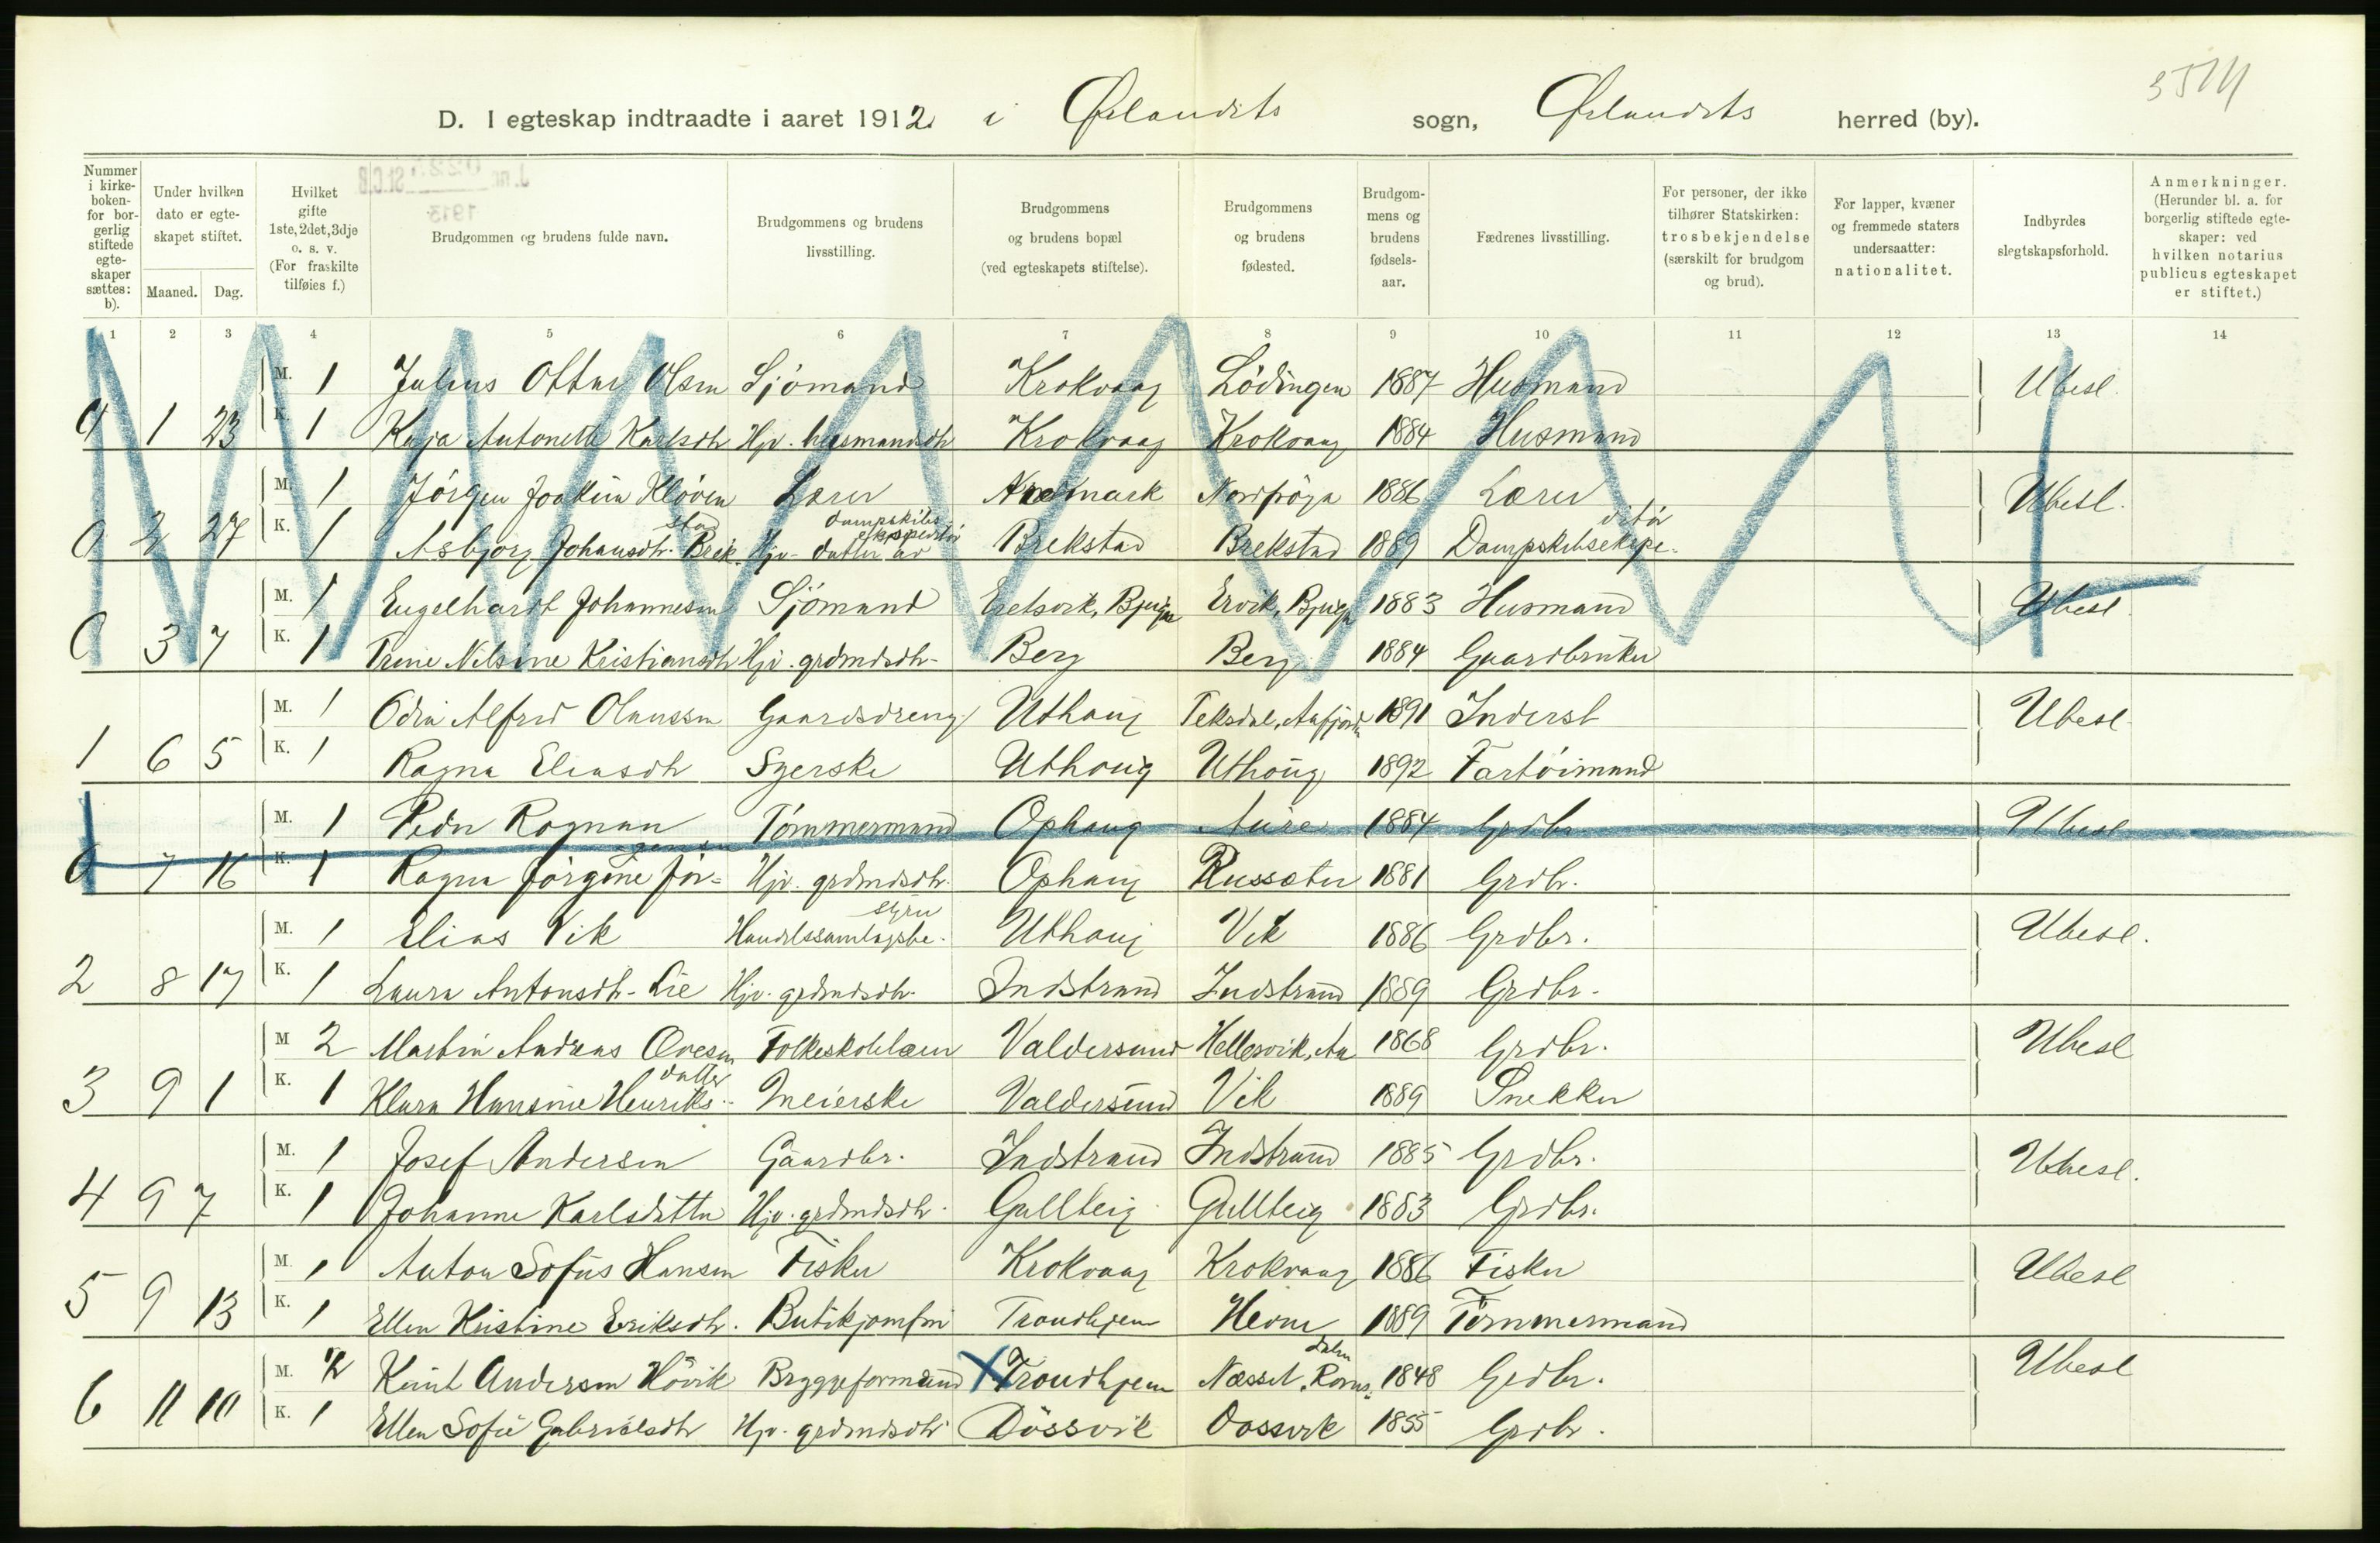 3514
D. I egteskap indtraadte i aaret 1912 i Ørlandets sogn, Ørlandets herred (by).
Nummer i kirkeboken- for borgerlig stiftede egteskaper sættes: b).
Under hvilken dato er egteskapet stiftet.
Maaned. Dag.
Hvilket gifte 1ste, 2det, 3dje o. s. v. (For fraskilte tilføies f.)
Brudgommen og brudens fulde navn.
Brudgommens og brudens livsstilling.
Brudgommens og brudens bopæl (ved egteskapets stiftelse).
Brudgommens og brudens fødested.
Brudgommens og brudens fødselsaar.
Fædrenes livsstilling.
For personer, der ikke tilhører Statskirken: trosbekjendelse (særskilt for brudgom og brud).
For lapper, kvæner og fremmede staters undersaatter: nationalitet.
Indbyrdes slegtskapsforhold.
Anmerkninger. (Herunder bl. a. for borgerlig stiftede egteskaper: ved hvilken notarius publicus egteskapet er stiftet.)
1 2 3 4 5 6 7 8 9 10 11 12 13 14
M. 1 Julius Ottar Olsen Sjömand Krokvaag Lödingen 1887 Husmand Ubesl.
0 1 23 K. 1 Kaja Antonette Karlsdtr Hjv. husmandsdtr Krokvaag Krokvaag 1884 Husmand
M. 1 Jörgen Joakim Klöven Lærer Nordfröya 1886 Lærer Ubesl.
0 2 27 K. 1 Asbjörg Johansdtr. Brekstad Hjv. datter av dampskibsekspeditör Brekstad Brekstad 1889 Dampskibsekspeditör
M. 1 Engelhardt Johannesen Sjömand Eretsvik, Bjugn Ervik, Bjugn 1883 Husmand Ubesl.
0 3 7 K. 1 Trine Nilsine Kristiansdtr Hjv. grdmdsdtr. Berg Berg 1884 Gaardbruker
M. 1 Odin Alfred Olaussen Gaardsdreng Uthaug Teksdal, Aafjord 1891 Inderst Ubesl.
1 6 5 K. 1 Ragna Eliasdtr Syerske Uthaug Uthaug 1892 Fartöimand
M. 1 Peder Rognan Tömmermand Ophaug Aure 1884 Grdbr. Ubesl
0 7 16 K. 1 Ragna Jörgine Jörgensen Hjv. grdmdsdtr. Ophaug Russæter 1881 Grdbr.
M. 1 Elias Vik Handelssamlagsbestyrer Uthaug Vik 1886 Grdbr. Ubesl.
2 8 17 K. 1 Laura Antonsdtr. Lie Hjv. grdmdsdtr. Indstrand Indstrand 1889 Grdbr.
M 2 Martin Andreas Ovesen Folkeskolelærer Valdersund Hellesvik, Aa 1868 Grdbr. Ubesl
3 9 1 K. 1 Klara Hansine Henriksdatter Meierske Valdersund Vik 1889 Snekker
M. 1 Josef Andersen Gaardbr. Indstrand Indstrand 1885 Grdbr. Ubesl.
4 9 7 K. 1 Johanne Karlsdatter Hjv. grdmdsdtr. Gullteig Gullteig 1883 Grdbr.
M. 1 Anton Sofus Hansen Fisker Krokvaag Krokvaag 1886 Fisker Ubesl
5 9 13 K. 1 Ellen Kristine Eriksdtr. Butikjomfru Trondhjem Hevne 1889 Tömmermand
M. 2 Knut Andersen Hövik Bryggeformand X Trondhjem Næsset, Romsdalen 1848 Grdbr. Ubesl
6 11 10 K. 1 Ellen Sofie Gabrielsdtr Hjv. grdmdsdtr Dössvik Dössvik 1855 Grdbr.